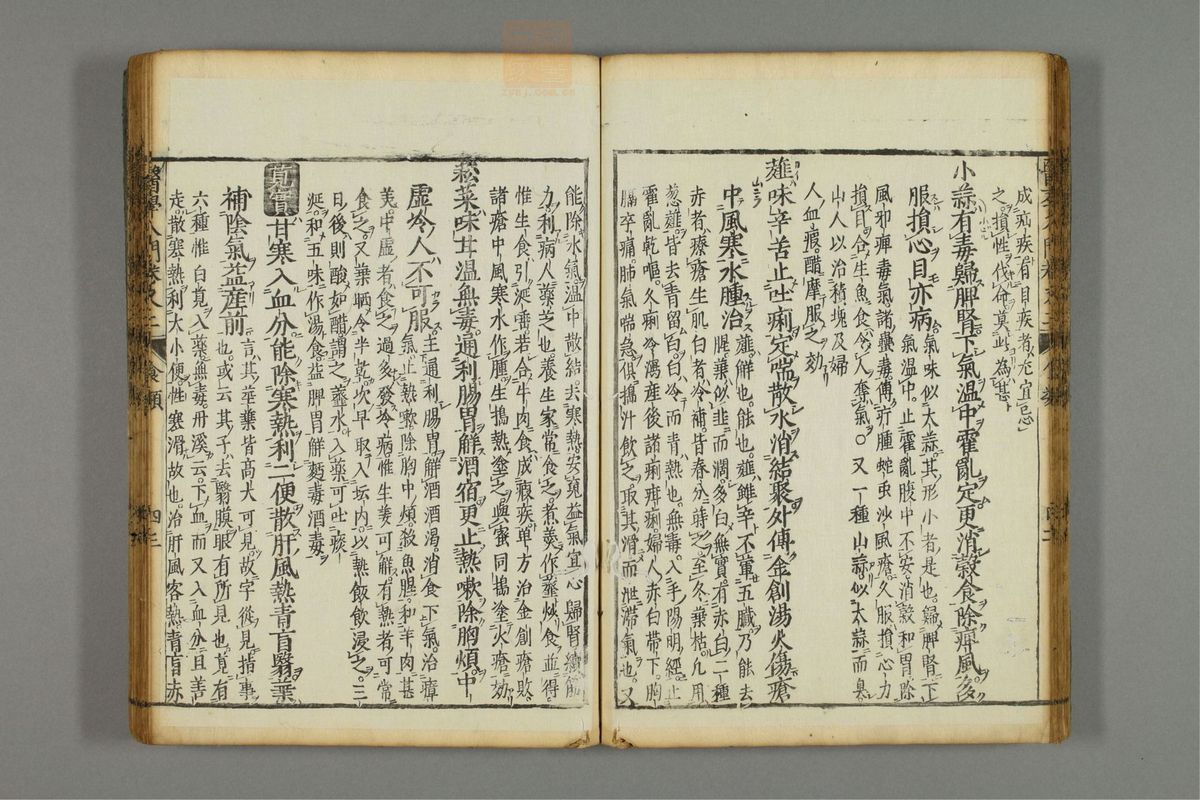 成痰疾有目疾者尤宜忌
之損性伐命莫此為甚
小蒜有毒歸脾腎下氣溫中霍亂定更消穀食除痹風多
服損心目亦病
氣味似大蒜其形小者是也歸脾腎下
氣溫中止霍亂腹中不安消穀和胃除
風邪痹毒氣諸蠱毒傅疔腫蛇虫沙風瘡久服損心力
損目食生魚食令人奪氣○又一種山蒜似大蒜而臭
山人以治積塊及婦
人血瘕醋摩服之効
薤味辛苦止吐痢定喘散水消結聚外傅金創湯火傷瘡
中風寒水腫治
薤觧也能也薤雖辛不葷五臟乃能去
腥葉似韭而濶多白無實有赤白二種
赤者療瘡生肌白者冷補皆春分蒔之至冬葉枯凡用
葱薤皆去青留白白冷而青熱也無毒入手陽明經止
霍亂乾嘔久痢冷瀉產後諸痢疳痢婦人赤白帶下胸
膈卒痛肺氣喘急俱擣汁飲之取其滑而泄滯氣也又
能除水氣溫中散結去寒熱安䰟益氣宜心歸腎續筋
力利病人藥芝也養生家常食之煮羹作虀炒食並得
惟生食引涎唾若合牛肉食成癥疾單方治金創瘡敗
諸瘡中風寒水作腫生搗熱塗之與蜜同搗塗火瘡効
菘菜味甘溫無毒通利腸胃解酒宿更止熱嗽除胸煩中
虛冷人不可服
主通利腸胃觧酒酒渴消食下氣治瘴
氣止熱嗽除胸中煩殺魚腥和羊肉甚
美中虛者食之過多發冷病惟生姜可觧有熱者可常
食之又葉晒令半乾次早取入坛内以熱飯飲浸之三
日後則酸如醋謂之虀水入藥可吐痰
涎和五味作湯食益脾胃解麪毒酒毒
莧實甘寒入血分能除寒熱利二便散肝風熱青盲翳葉
補陰氣益產前
言其莖葉皆高大可見故字從見指事
也或云其子去翳膜眼有所見也莧有
六種惟白莧入藥無毒丹溪云下血而又入血分且善
走散寒熱利大小便性寒滑故也治肝風客熱青盲赤
醫學入門卷之二
食類
四三